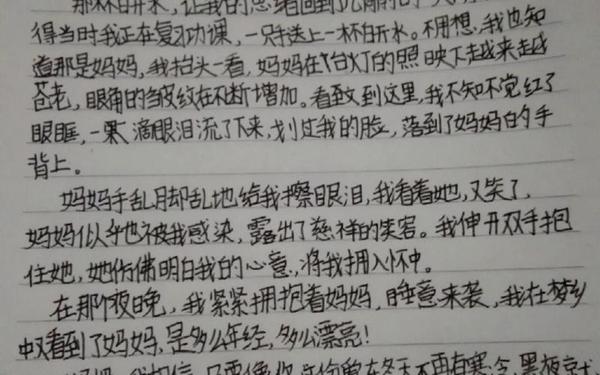 那杯白开水，让我的思绪回到
得当时我正在复习功课，一只手送上一杯白开水。不用想，我也知
道那是妈妈，我抬头一看，妈妈在台灯的照映下越来越
苍老，眼角的皱纹在不断增加。看到这里，我不知不觉红了
眼眶，一滴眼泪流了下来，划过我的脸，落到了妈妈的手
背上。
妈妈手乱脚乱地给我擦眼泪，我看着她，又笑了，
妈妈似乎也被我感染，露出了慈祥的笑容。我伸开双手抱
住她，她仿佛明白我的心意，将我拥入怀中。
在那个夜晚，我紧紧拥抱着妈妈，睡意来袭，我在梦乡
中又看到了妈妈，是多么年经，多么漂亮！
我相信，只要像你
在冬天不再有寒冷，黑板